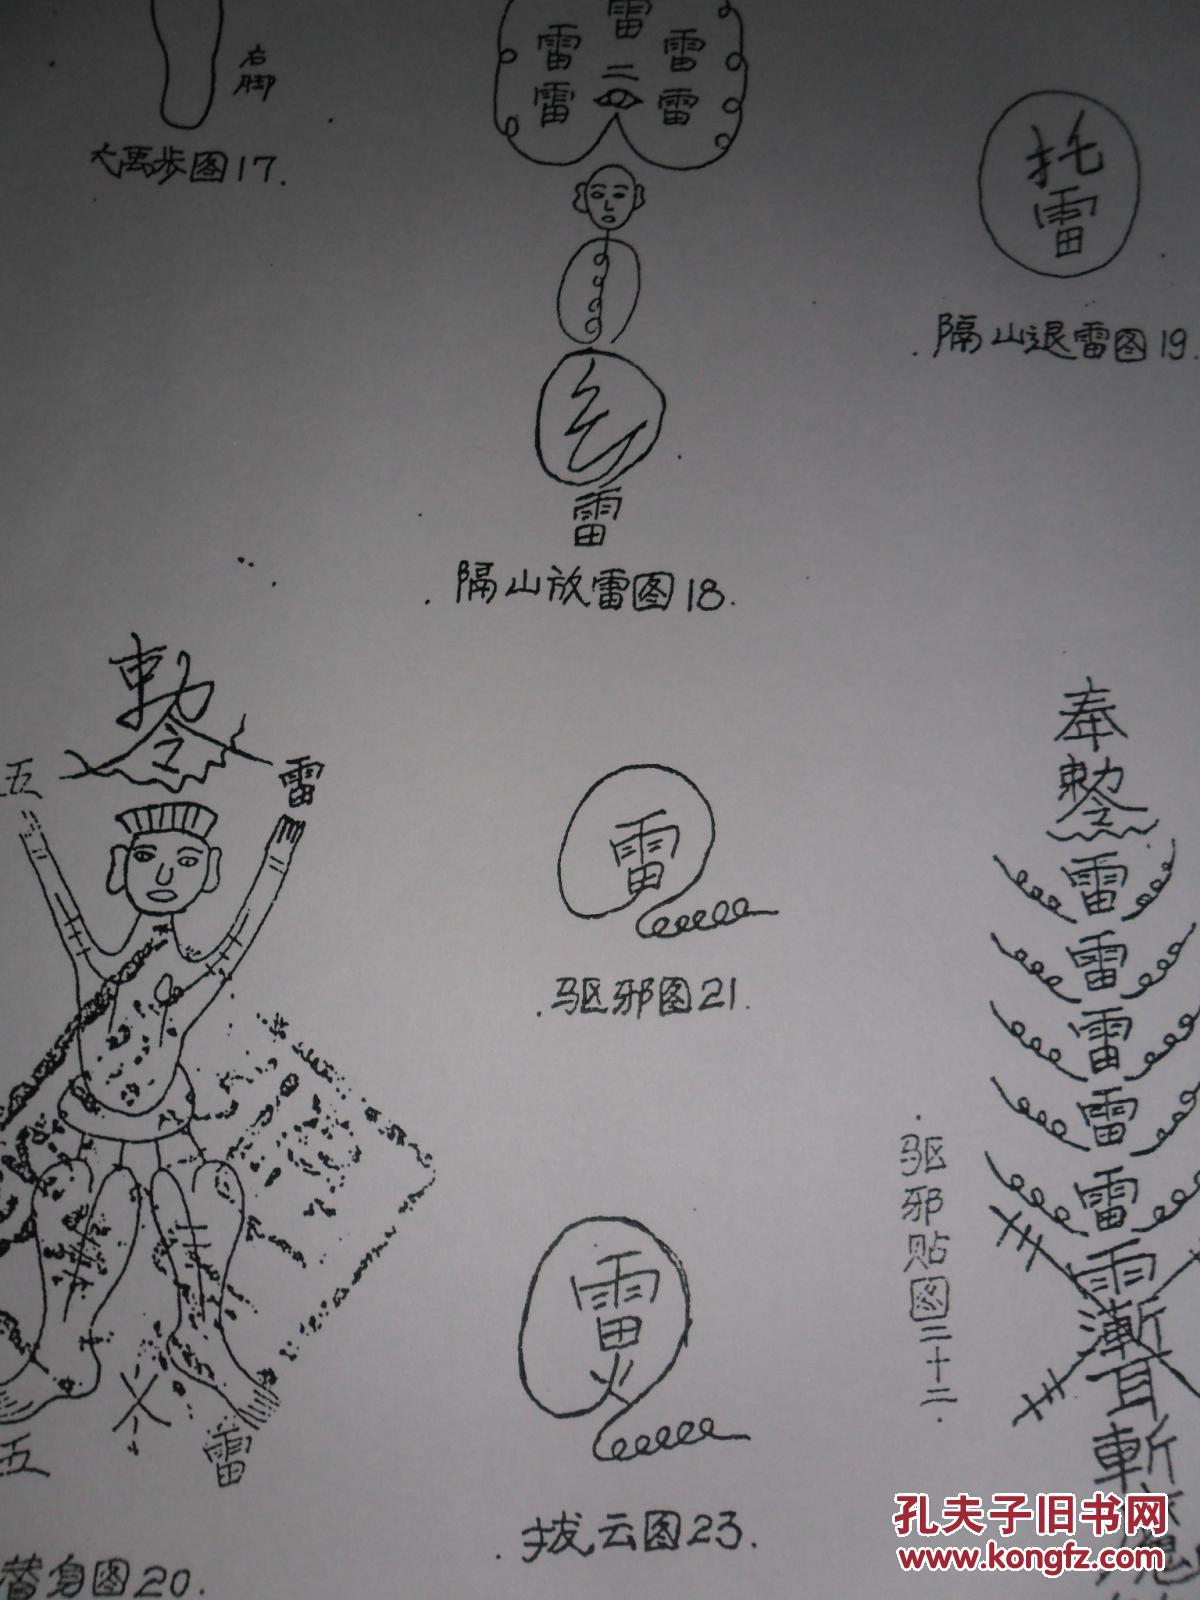 右脚
大禹步图17.
雷
雷 雷
二
雷 雷
雷
隔山放雷图18.
托
雷
隔山退雷图19.
敕
令
五 雷
五 雷
替身图20.
雷
驱邪图21.
雷
火
拔云图23.
奉
敕令
雷
雷
雷
雷
雷
雨
渐
耳
斬
驱邪贴图二十二.
孔夫子旧书网
www.kongfz.com